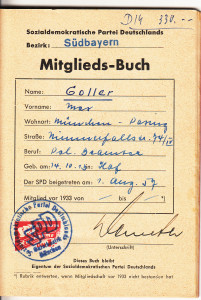 D14 330.—
Sozialdemokratische Partei Deutschlands
Bezirk: Südbayern
Mitglieds-Buch
Name: Goller
Vorname: Max
Wohnort: München - Pasing
Straße: 74/IV
Beruf: Pol. Beamter
Geb. am: 14. 10. in Hof
Der SPD beigetreten am: 1. Aug. 57
Mitglied vor 1933 von / bis / *)
(Unterschrift)
Dieses Buch bleibt
Eigentum der Sozialdemokratischen Partei Deutschlands
*) Rubrik entwerten, wenn Mitgliedschaft vor 1933 nicht bestanden hat
Sozialdemokratische Partei Deutschlands
SPD
München